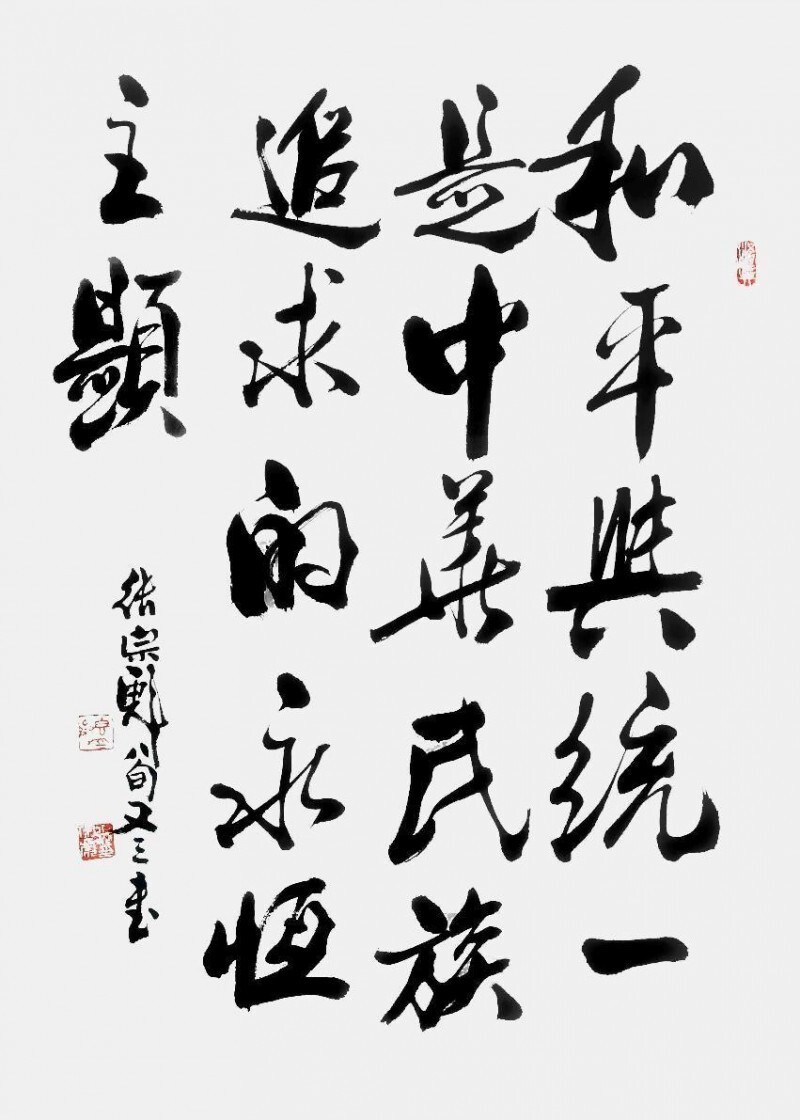 和平與統一
是中華民族
追求的永恒
主題
宗旬又三書